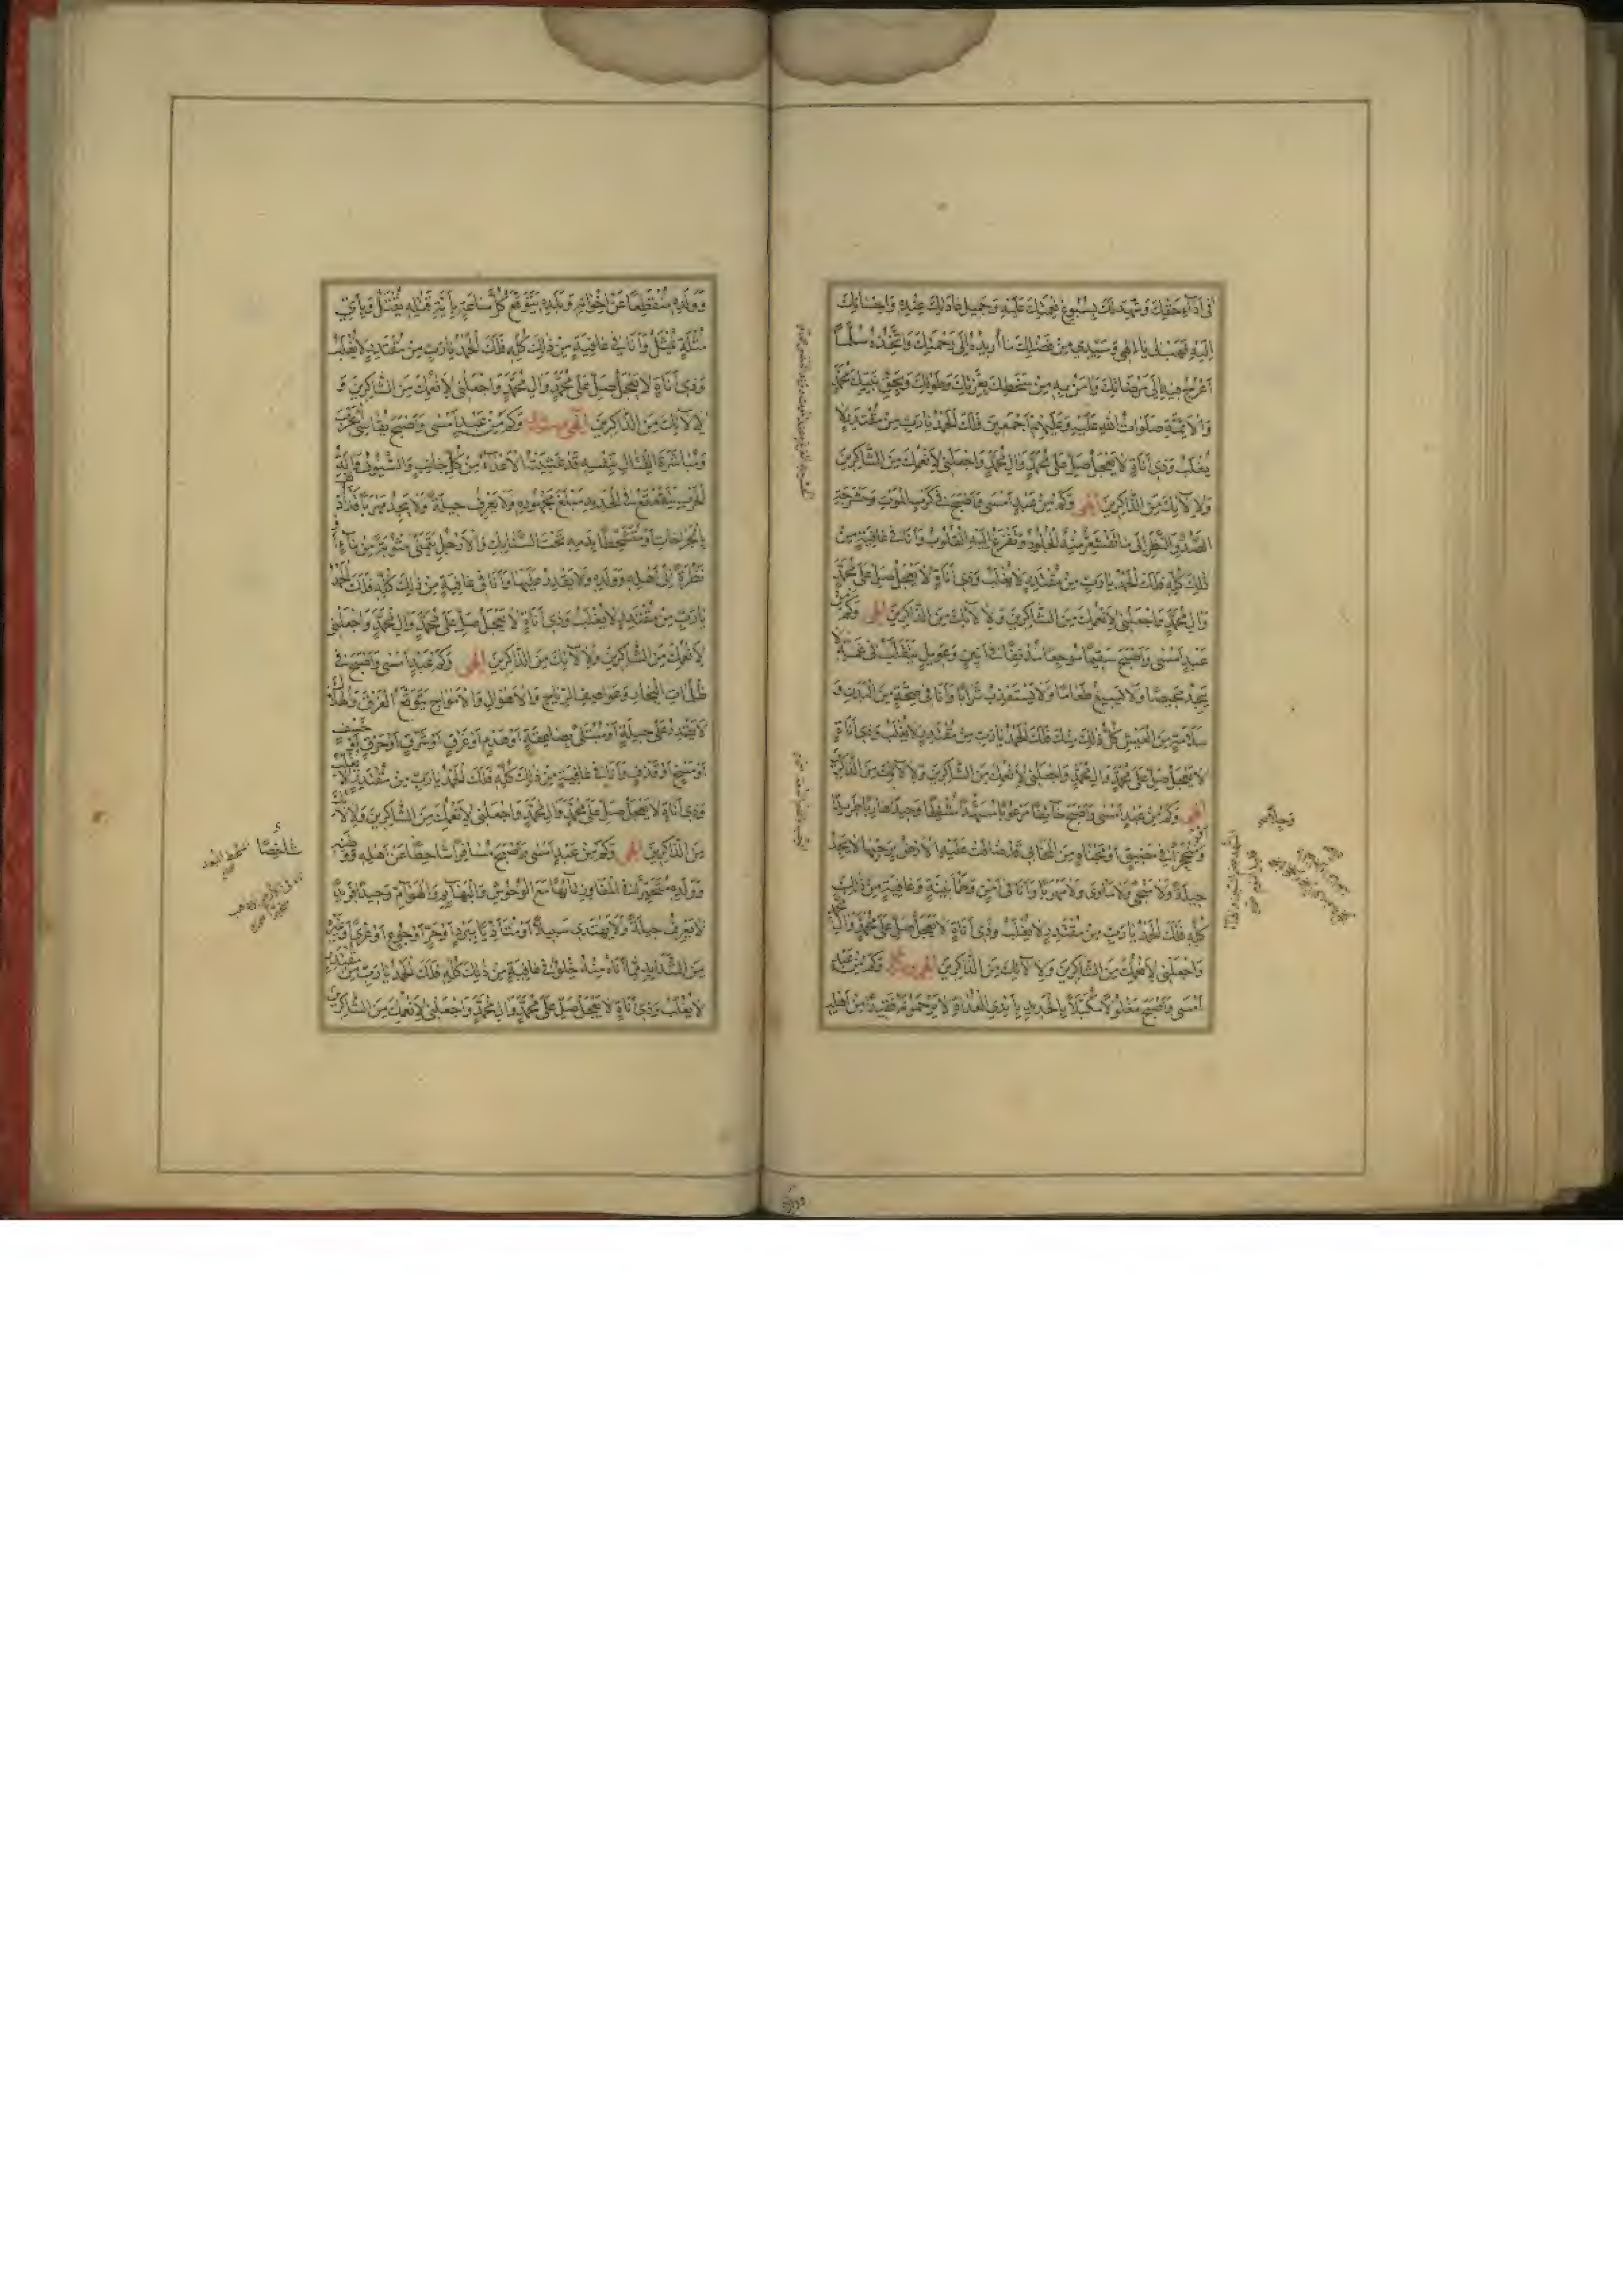 فى اَدآءِ حَقِّكَ وَشَهِدَ لَكَ بِسُبُوغِ نِعْمَتِكَ عَلَيْهِ وَجَميلِ عادَتِكَ عِنْدَهُ وَاِحْسانِكَ
اِلَيْهِ فَهَبْ لى يا اِلهى وَسَيِّدى مِنْ فَضْلِكَ ما اُريدُهُ اِلى رَحْمَتِكَ وَاَتَّخِذُهُ سُلَّماً
اَعْرُجُ فيهِ اِلى مَرْضاتِكَ وَامَنُ بِهِ مِنْ سَخَطِكَ بِعِزَّتِكَ وَطَوْلِكَ وَبِحَقِّ نَبِيِّكَ مُحَمَّدٍ
وَالْاَئِمَّةِ صَلَواتُ اللهِ عَلَيْهِ وَعَلَيْهِمْ اَجْمَعينَ فَلَكَ الْحَمْدُ يا رَبِّ مِنْ مُقْتَدِرٍ لا
يُغْلَبُ وَذى اَناةٍ لا يَعْجَلُ صَلِّ عَلى مُحَمَّدٍ وَالِ مُحَمَّدٍ وَاجْعَلْنى لِاَنْعُمِكَ مِنَ الشّاكِرينَ
وَلِالآئِكَ مِنَ الذّاكِرينَ اِلهى وَكَمْ مِنْ عَبْدٍ اَمْسى وَاَصْبَحَ فى كَرْبِ الْمَوْتِ وَحَشْرَجَةِ
الصَّدْرِ وَالنَّظَرِ اِلى ما تَقْشَعِرُّ مِنْهُ الْجُلُودُ وَتَفْزَعُ اِلَيْهِ الْقُلُوبُ وَاَنَا فى عافِيَةٍ مِنْ
ذلِكَ كُلِّهِ فَلَكَ الْحَمْدُ يا رَبِّ مِنْ مُقْتَدِرٍ لا يُغْلَبُ وَذى اَناةٍ لا يَعْجَلُ صَلِّ عَلى مُحَمَّدٍ
وَالِ مُحَمَّدٍ وَاجْعَلْنى لِاَنْعُمِكَ مِنَ الشّاكِرينَ وَلِالآئِكَ مِنَ الذّاكِرينَ اِلهى وَكَمْ مِنْ
عَبْدٍ اَمْسى وَاَصْبَحَ سَقيماً مُوجِعاً مُدْنِفاً فى اَنينٍ وَعَويلٍ يَتَقَلَّبُ فى غَمِّهِ لا
يَجِدُ مَحيصاً وَلا يُسيغُ طَعاماً وَلا يَسْتَعْذِبُ شَراباً وَاَنَا فى صِحَّةٍ مِنَ الْبَدَنِ وَ
سَلامَةٍ مِنَ الْعَيْشِ كُلُّ ذلِكَ مِنْكَ فَلَكَ الْحَمْدُ يا رَبِّ مِنْ مُقْتَدِرٍ لا يُغْلَبُ وَذى اَناةٍ
لا يَعْجَلُ صَلِّ عَلى مُحَمَّدٍ وَالِ مُحَمَّدٍ وَاجْعَلْنى لِاَنْعُمِكَ مِنَ الشّاكِرينَ وَلِالآئِكَ مِنَ الذّاكِرينَ
اِلهى وَكَمْ مِنْ عَبْدٍ اَمْسى وَاَصْبَحَ خآئِفاً مَرْعُوباً مُسَهَّداً مُشْفِقاً وَحيداً هارِباً طَريداً
وَمُنْجَحِراً فى مَضيقٍ اَوْ مَخْبَاَةٍ مِنَ الْمَخابى قَدْ ضاقَتْ عَلَيْهِ الْاَرْضُ بِرَحْبِها لا يَجِدُ
حيلَةً وَلا مَنْجى وَلا مَأْوى وَلا مَهْرَباً وَاَنَا فى اَمْنٍ وَطُمَأْنينَةٍ وَعافِيَةٍ مِنْ ذلِكَ
كُلِّهِ فَلَكَ الْحَمْدُ يا رَبِّ مِنْ مُقْتَدِرٍ لا يُغْلَبُ وَذى اَناةٍ لا يَعْجَلُ صَلِّ عَلى مُحَمَّدٍ وَالِ مُحَمَّدٍ
وَاجْعَلْنى لِاَنْعُمِكَ مِنَ الشّاكِرينَ وَلِالآئِكَ مِنَ الذّاكِرينَ اِلهى وَكَمْ مِنْ عَبْدٍ
اَمْسى وَاَصْبَحَ مَغْلُولاً مُكَبَّلاً بِالْحَديدِ بِاَيْدِى الْعُداةِ لا يَرْحَمُونَهُ فَقيداً مِنْ اَهْلِهِ
وَوَلَدِهِ مُنْقَطِعاً عَنْ اِخْوانِهِ وَبَلَدِهِ يَتَوَقَّعُ كُلَّ ساعَةٍ بِاَيَّةِ قَتْلَةٍ يُقْتَلُ وَبِاَىِّ
مُثْلَةٍ يُمَثَّلُ وَاَنَا فى عافِيَةٍ مِنْ ذلِكَ كُلِّهِ فَلَكَ الْحَمْدُ يا رَبِّ مِنْ مُقْتَدِرٍ لا يُغْلَبُ
وَذى اَناةٍ لا يَعْجَلُ صَلِّ عَلى مُحَمَّدٍ وَالِ مُحَمَّدٍ وَاجْعَلْنى لِاَنْعُمِكَ مِنَ الشّاكِرينَ وَ
لِالآئِكَ مِنَ الذّاكِرينَ اِلهى وَسَيِّدى وَكَمْ مِنْ عَبْدٍ اَمْسى وَاَصْبَحَ يُقاسِى الْحَرْبَ
وَمُباشَرَةَ الْقِتالِ بِنَفْسِهِ قَدْ غَشِيَتْهُ الْاَعْدآءُ مِنْ كُلِّ جانِبٍ وَالسُّيُوفُ وَالَةُ
الْحَرْبِ يَتَقَعْقَعُ فى الْحَديدِ مَبْلَغَ مَجْهُودِهِ وَلا يَعْرِفُ حيلَةً وَلا يَجِدُ مَهْرَباً قَدْ اُدْنِفَ
بِالْجِراحاتِ اَوْ مُتَشَحِّطاً بِدَمِهِ تَحْتَ السَّنابِكِ وَالْاَرْجُلِ يَتَمَنّى شَرْبَةً مِنْ مآءٍ اَوْ
نَظْرَةً اِلى اَهْلِهِ وَوَلَدِهِ وَلا يَقْدِرُ عَلَيْها وَاَنَا فى عافِيَةٍ مِنْ ذلِكَ كُلِّهِ فَلَكَ الْحَمْدُ
يا رَبِّ مِنْ مُقْتَدِرٍ لا يُغْلَبُ وَذى اَناةٍ لا يَعْجَلُ صَلِّ عَلى مُحَمَّدٍ وَالِ مُحَمَّدٍ وَاجْعَلْنى
لِاَنْعُمِكَ مِنَ الشّاكِرينَ وَلِالآئِكَ مِنَ الذّاكِرينَ اِلهى وَكَمْ عَبْدٍ اَمْسى وَاَصْبَحَ فى
ظُلُماتِ الْبِحارِ وَعَواصِفِ الرِّياحِ وَالْاَهْوالِ وَالْاَمْواجِ يَتَوَقَّعُ الْغَرَقَ وَالْهَلاكَ
لا يَقْدِرُ عَلى حيلَةٍ اَوْ مُبْتَلىً بِصاعِقَةٍ اَوْ هَدْمٍ اَوْ غَرَقٍ اَوْ شَرَقٍ اَوْ حَرَقٍ اَوْ خَسْفٍ
اَوْ مَسْخٍ اَوْ قَذْفٍ وَاَنَا فى عافِيَةٍ مِنْ ذلِكَ كُلِّهِ فَلَكَ الْحَمْدُ يا رَبِّ مِنْ مُقْتَدِرٍ لا يُغْلَبُ
وَذى اَناةٍ لا يَعْجَلُ صَلِّ عَلى مُحَمَّدٍ وَالِ مُحَمَّدٍ وَاجْعَلْنى لِاَنْعُمِكَ مِنَ الشّاكِرينَ وَلِالآئِكَ
مِنَ الذّاكِرينَ اِلهى وَكَمْ مِنْ عَبْدٍ اَمْسى وَاَصْبَحَ مُسافِراً شاحِطاً عَنْ اَهْلِهِ وَوَطَنِهِ
وَوَلَدِهِ مُتَحَيِّراً فى الْمَفاوِزِ تآئِهاً مَعَ الْوُحُوشِ وَالْبَهآئِمِ وَالْهَوآمِّ وَحيداً فَريداً
لا يَعْرِفُ حيلَةً وَلا يَهْتَدى سَبيلاً اَوْ مُتَاَذِّياً بِبَرْدٍ اَوْ حَرٍّ اَوْ جُوعٍ اَوْ عُرْىٍ اَوْ غَيْرِهِ
مِنَ الشَّدآئِدِ مِمّا اَنَا مِنْهُ خِلْوٌ فى عافِيَةٍ مِنْ ذلِكَ كُلِّهِ فَلَكَ الْحَمْدُ يا رَبِّ مِنْ مُقْتَدِرٍ
لا يُغْلَبُ وَذى اَناةٍ لا يَعْجَلُ صَلِّ عَلى مُحَمَّدٍ وَالِ مُحَمَّدٍ وَاجْعَلْنى لِاَنْعُمِكَ مِنَ الشّاكِرينَ
شاخِصاً